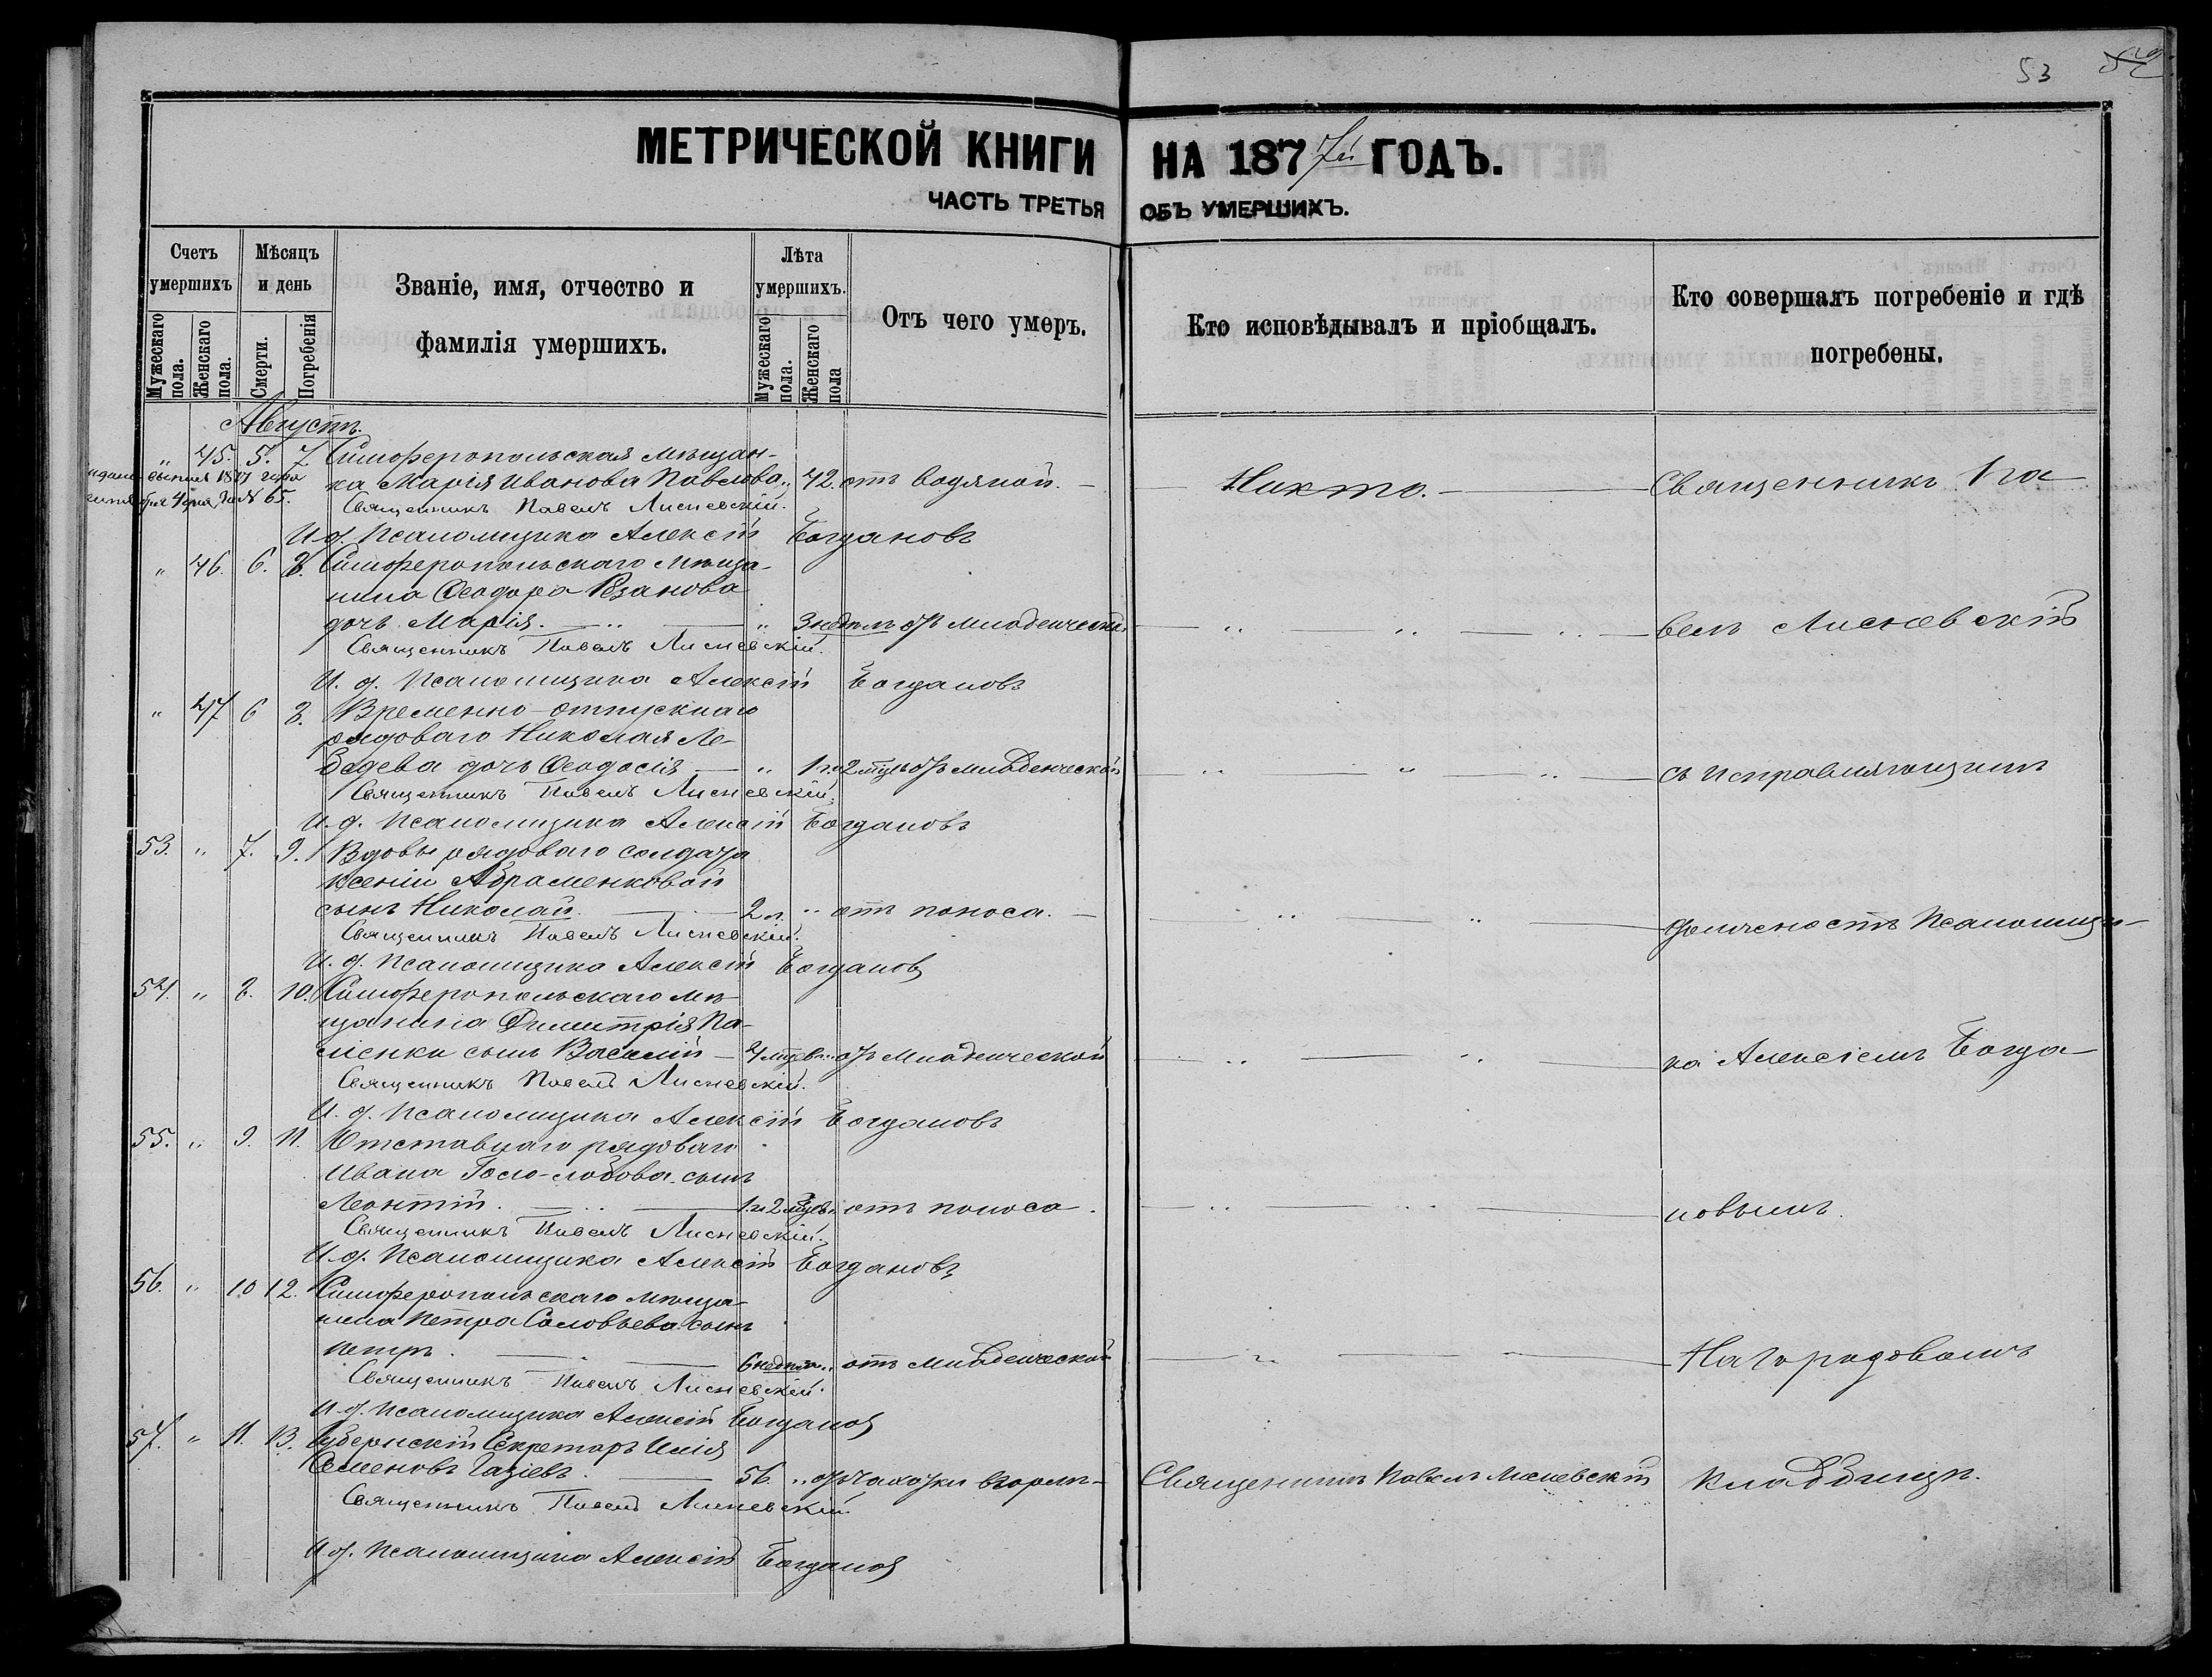 53
МЕТРИЧЕСКОЙ КНИГИ НА 1877й ГОДЪ.
ЧАСТЬ ТРЕТЬЯ ОБЪ УМЕРШИХЪ.
Счетъ умершихъ
Мужескаго пола.
Женскаго пола.
Мѣсяцъ и день
Смерти.
Погребенія
Званіе, имя, отчество и фамилія умершихъ.
Лѣта умершихъ.
Мужескаго пола.
Женскаго пола
Отъ чего умеръ.
Кто исповѣдывалъ и пріобщалъ.
Кто совершалъ погребеніе и гдѣ погребены.
Августъ.
" 45. 5. 7 Симферопольская мѣщан-
ка Марія Иванова Павлова " 42. отъ водяной. — Никто. — Священникъ Па
1877 года
за № 65.
Священникъ Павелъ Лисневскій.
И. д. Псаломщика Алексій Богдановъ
" 46. 6. 8. Симферопольскаго мѣща-
нина Ѳеодора Рѣзанова
дочь Марія. " 3 недѣль отъ младенческой " " " велъ Лисневскій
Священникъ Павелъ Лисневскій.
И. д. Псаломщика Алексій Богдановъ
" 47 6 8. Временно-отпускнаго
рядоваго Николая Ле-
бедева дочь Ѳеодосія — " 1 г. 2 мѣц. отъ младенческой " " " съ исправляющимъ
Священникъ Павелъ Лисневскій.
И. д. Псаломщика Алексій Богдановъ
53. " 7. 9. Вдовы рядоваго солдата
Ксеніи Абраменковой
сынъ Николай. 2 л. " отъ поноса. — " " должность Псаломщи-
Священникъ Павелъ Лисневскій.
И. д. Псаломщика Алексій Богдановъ
54. " 8. 10. Симферопольскаго мѣ-
щанина Димитрія Па-
сынъ Василій — 4 мѣцев. " отъ младенческой " " ка Алексіемъ Богда-
Священникъ Павелъ Лисневскій.
И. д. Псаломщика Алексій Богдановъ
55. " 9. 11. Отставнаго рядоваго
Ивана Голо-лобова сынъ
Леонтій. 1 г. 2 мѣцев. отъ поноса. " " новымъ.
Священникъ Павелъ Лисневскій.
И. д. Псаломщика Алексій Богдановъ
56. " 10 12. Симферопольскаго мѣща-
нина Петра Соловьева сынъ
Петръ. 6 недѣль " отъ младенческой " На городовомъ
Священникъ Павелъ Лисневскій.
И. д. Псаломщика Алексій Богдановъ
57. " 11. 13. Губернскій Секретарь Илія
Семеновъ Газіевъ. 56. " отъ чахотки Священникъ Павелъ Лисневскій кладбищѣ.
Священникъ Павелъ Лисневскій
И. д. Псаломщика Алексій Богдановъ